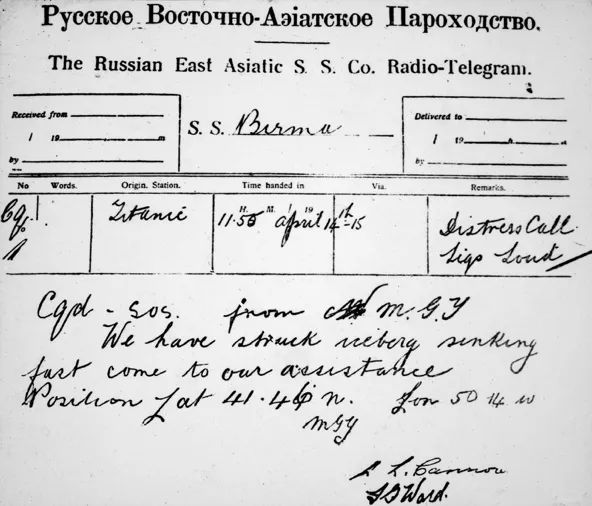 Русское Восточно-Азіатское Пароходство.
The Russian East Asiatic S. S. Co. Radio-Telegram.
Received from
1 19 m
by
S. S. Birma
Delivered to
1 19 m
by
No Words. Origin. Station. Time handed in Via. Remarks.
H. M. 1 19
Titanic 11.50 April 14th-15 Distress Call
Sigs Loud
Cqd - SOS. from M.G.Y
We have struck iceberg sinking
fast come to our assistance
Position Lat 41.46 n. Lon 50 14 w
MGY
L. Cannon
Ward.